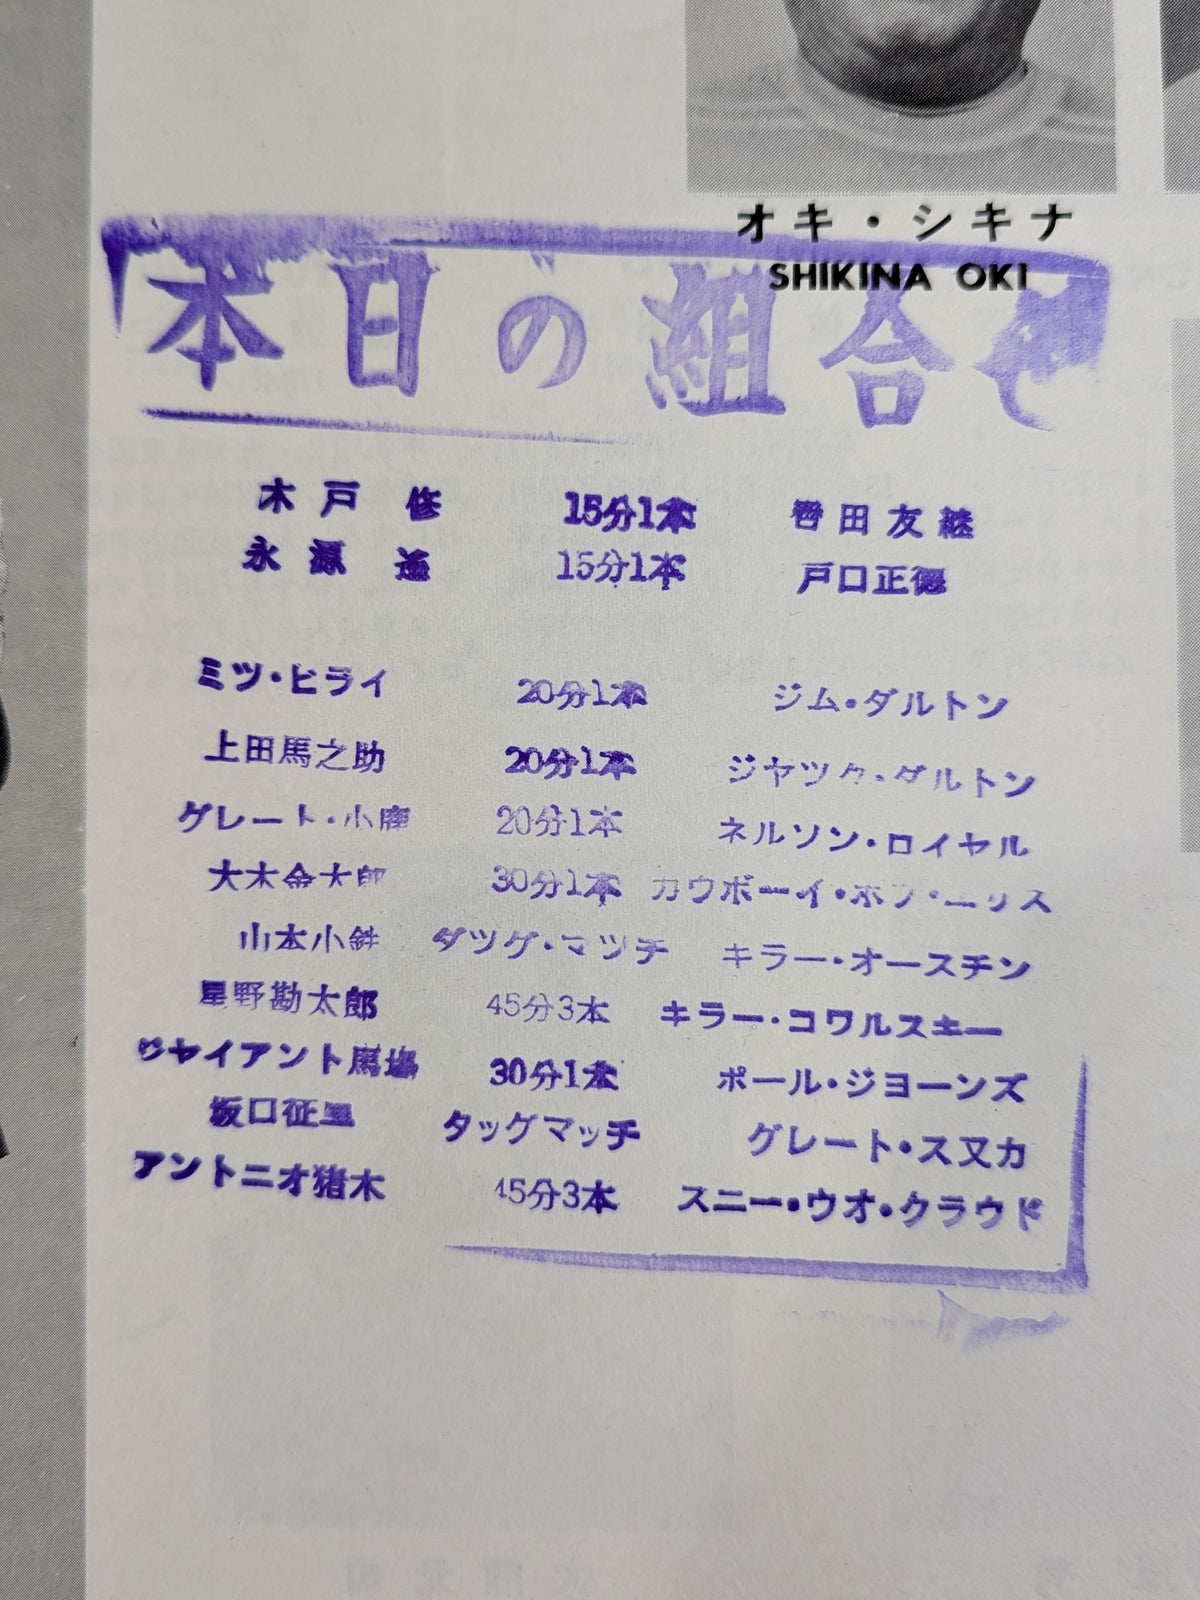 オキ・シキナ
SHIKINA OKI
本日の組合せ
木戸修 15分1本 香田友継
永源遥 15分1本 戸口正徳
ミツ・ヒライ 20分1本 ジム・ダルトン
上田馬之助 20分1本 ジヤツク・ダルトン
グレート・小鹿 20分1本 ネルソン・ロイヤル
大木金太郎 30分1本 カウボーイ・ボブ・エリス
山本小鉄 タツグ・マツチ キラー・オースチン
星野勘太郎 45分3本 キラー・コワルスキー
ジヤイアント馬場 30分1本 ポール・ジヨーンズ
坂口征二 タッグマッチ グレート・スヌカ
アントニオ猪木 45分3本 スニー・ウオ・クラウド